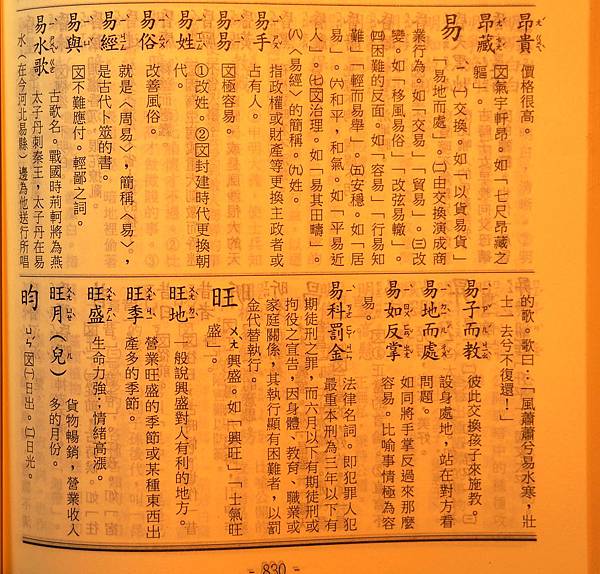 昂貴 價格很高。
昂藏 ㄤˊ ㄘㄤˊ
図氣宇軒昂。如「七尺昂藏之
軀」。
易 ㄧˋ
一、㈠交換。如「以貨易貨」
「易地而處」。㈡由交換演成商
業行為。如「交易」「貿易」。㈢改
變。如「移風易俗」「改弦易轍」。
㈣困難的反面。如「容易」「行易知
難」「輕而易舉」。㈤安穩。如「居
易」。㈥和平，和氣。如「平易近
人」。㈦図治理。如「易其田疇」。
㈧〈易經〉的簡稱。㈨姓。
易手 指政權或財產等更換主政者或
占有人。
易易 図極容易。
易姓 ①改姓。②図封建時代更換朝
代。
易俗 改善風俗。
易經 就是〈周易〉，簡稱〈易〉，
是古代卜筮的書。
易與 図不難應付。輕鄙之詞。
易水歌 古歌名。戰國時荊軻將為燕
太子丹刺秦王，太子丹在易
水（在今河北易縣）邊為他送行所唱
的歌。歌曰：「風蕭蕭兮易水寒，壯
士一去兮不復還！」
易子而教 彼此交換孩子來施教。
易地而處 設身處地，站在對方看
問題。
易如反掌 如同將手掌反過來那麼
容易。比喻事情極為容
易。
易科罰金 法律名詞。即犯罪人犯
最重本刑為三年以下有
期徒刑之罪，而六月以下有期徒刑或
拘役之宣告，因身體、教育、職業或
家庭關係，其執行顯有困難者，以罰
金代替執行。
旺 ㄨㄤˋ 興盛。如「興旺」「士氣旺
盛」。
旺地 一般說興盛對人有利的地方。
旺季 營業旺盛的季節或某種東西出
產多的季節。
旺盛 生命力強；情緒高漲。
旺月(兒) 貨物暢銷，營業收入
多的月份。
昀 ㄩㄣˊ 図㈠日出。㈡日光。
- 830 -